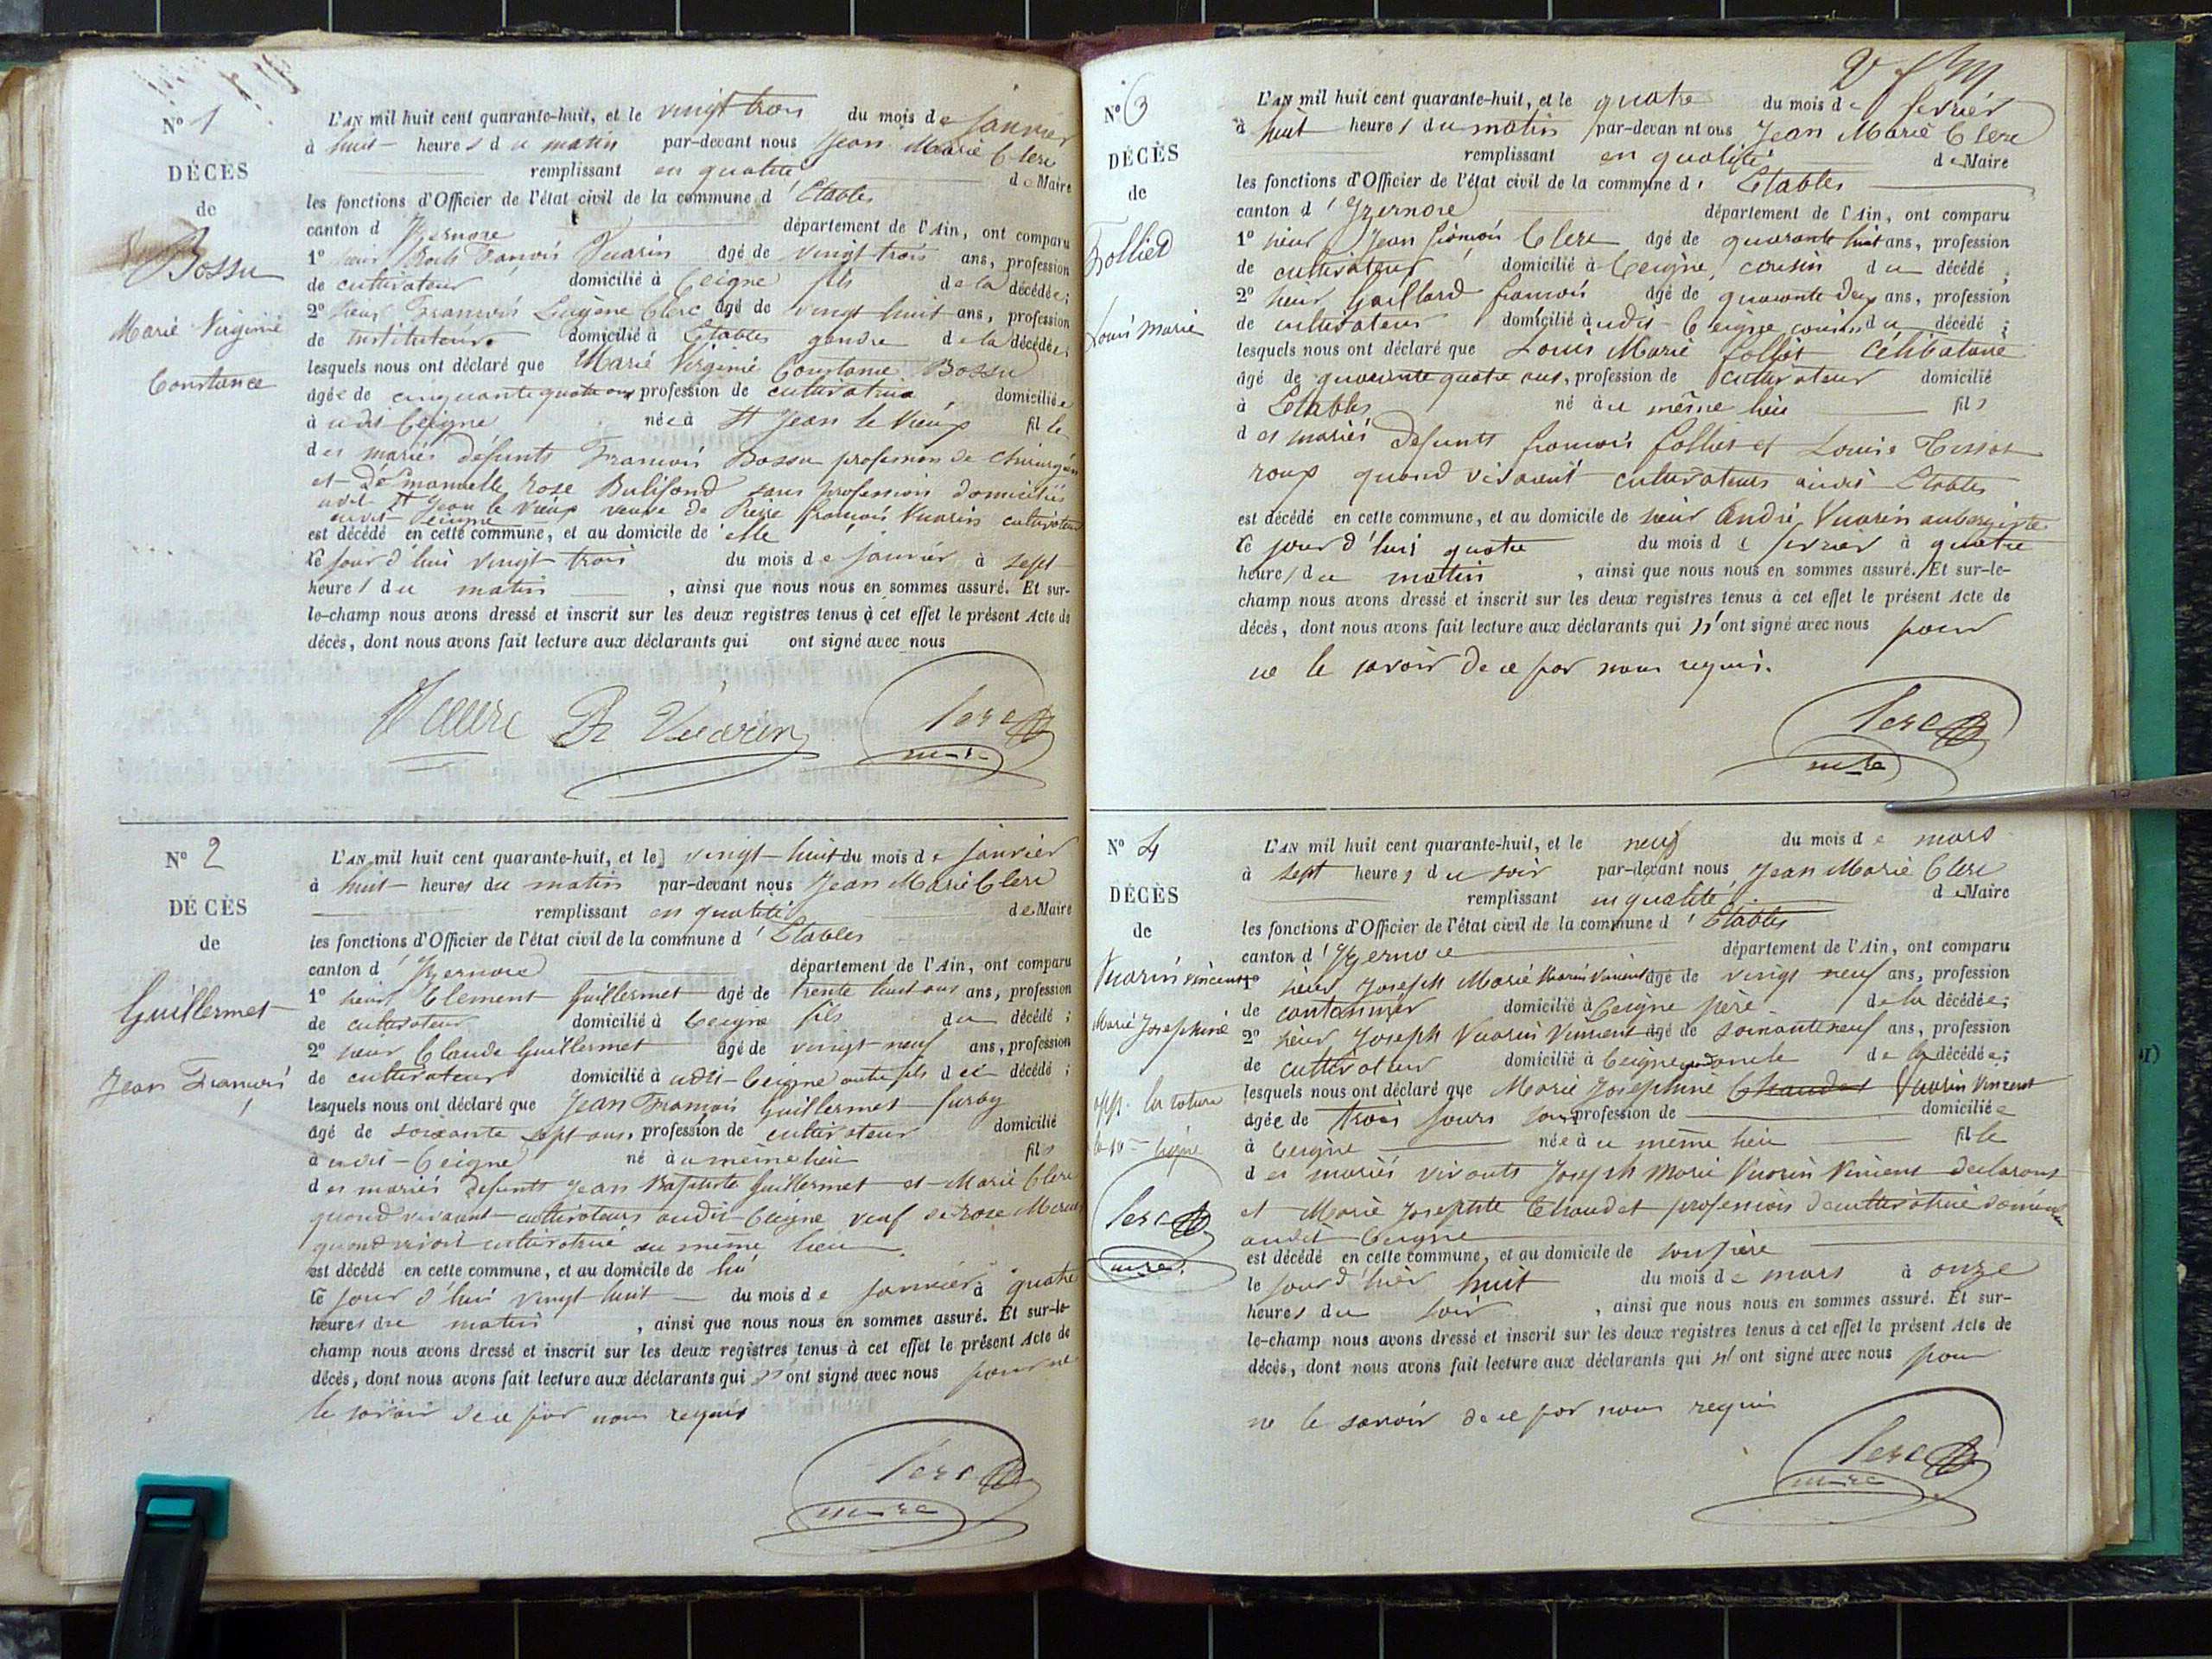 N° 1
DÉCÈS
de
Bossu
Marie Virginie
Constance
L'AN mil huit cent quarante-huit, et le vingt trois du mois de janvier
à huit heures du matin par-devant nous Jean Marie Clerc
remplissant en qualité de Maire
les fonctions d'Officier de l'état civil de la commune d'Etables
canton d'Izernore département de l'Ain, ont comparu
1° sieur François Vuarin âgé de vingt trois ans, profession
de cultivateur domicilié à Ceigne fils de la décédée;
2° sieur François Eugène Clerc âgé de vingt huit ans, profession
de instituteur domicilié à Etables gendre de la décédée;
lesquels nous ont déclaré que Marie Virginie Constance Bossu
âgée de cinquante quatre ans profession de cultivatrice domiciliée
à udit Ceigne née à St Jean le Vieux fille
des mariés défunts François Bossu profession de chirurgien
et d'Emanuelle Rose Bulifond sans profession domiciliés
udit St Jean le Vieux veuve de Pierre François Vuarin cultivateur
audit Ceigne
est décédé en cette commune, et au domicile de elle
le jour d'hui vingt trois du mois de janvier à sept
heures du matin , ainsi que nous nous en sommes assuré. Et sur-
le-champ nous avons dressé et inscrit sur les deux registres tenus à cet effet le présent Acte de
décès, dont nous avons fait lecture aux déclarants qui ont signé avec nous
Vuarin Clerc
maire
N° 2
DÉCÈS
de
Guillermet
Jean François
L'AN mil huit cent quarante-huit, et le vingt-huit du mois de janvier
à huit heures du matin par-devant nous Jean Marie Clerc
remplissant en qualité de Maire
les fonctions d'Officier de l'état civil de la commune d'Etables
canton d'Izernore département de l'Ain, ont comparu
1° sieur Clement Guillermet âgé de trente huit ans ans, profession
de cultivateur domicilié à Ceigne fils du décédé;
2° sieur Claude Guillermet âgé de vingt-neuf ans, profession
de cultivateur domicilié à udit-Ceigne autre fils du décédé;
lesquels nous ont déclaré que Jean François Guillermet furby
âgé de soixante sept ans, profession de cultivateur domicilié
à udit-Ceigne né à u même lieu fils
des mariés défunts Jean Baptiste Guillermet et Marie Clerc
quand vivaient cultivateurs audit Ceigne veuf de Rose
quand vivait cultivatrice au même lieu
est décédé en cette commune, et au domicile de lui
le jour d'hui vingt huit du mois de janvier à quatre
heures du matin , ainsi que nous nous en sommes assuré. Et sur-le-
champ nous avons dressé et inscrit sur les deux registres tenus à cet effet le présent Acte de
décès, dont nous avons fait lecture aux déclarants qui n'ont signé avec nous pour ne
le savoir de ce par nous requis
Clerc
maire
N° 3
DÉCÈS
de
Folliet
Louis Marie
L'AN mil huit cent quarante-huit, et le quatre du mois de fevrier
à huit heures du matin par-devan nt ous Jean Marie Clerc
remplissant en qualité de Maire
les fonctions d'Officier de l'état civil de la commune d'Etables
canton d'Izernore département de l'Ain, ont comparu
1° sieur Jean François Clerc âgé de quarante huit ans, profession
de cultivateur domicilié à Ceigne, cousin du décédé;
2° sieur Gaillard françois âgé de quarante deux ans, profession
de cultivateur domicilié à udit-Ceigne cousin du décédé;
lesquels nous ont déclaré que Louis Marie folliet célibataire
âgé de quarante quatre ans, profession de cultivateur domicilié
à Etables né à u même lieu fils
des mariés défunts françois folliet et Louise Tissot
roux quand vivaient cultivateurs audit Etables
est décédé en cette commune, et au domicile de sieur André Vuarin aubergiste
le jour d'hui quatre du mois de fevrier à quatre
heures du matin , ainsi que nous nous en sommes assuré. Et sur-le-
champ nous avons dressé et inscrit sur les deux registres tenus à cet effet le présent Acte de
décès, dont nous avons fait lecture aux déclarants qui n'ont signé avec nous pour
ne le savoir de ce par nous requis.
Clerc
maire
N° 4
DÉCÈS
de
Vuarin vincent
Marie Josephine
app. la rature
Clerc
maire
L'AN mil huit cent quarante-huit, et le neuf du mois de mars
à sept heures du soir par-devant nous Jean Marie Clerc
remplissant en qualité de Maire
les fonctions d'Officier de l'état civil de la commune d'Etables
canton d'Izernore département de l'Ain, ont comparu
1° sieur Joseph Marie Vuarin Vincent âgé de vingt neuf ans, profession
de cantonnier domicilié à Ceigne père de la décédée;
2° sieur Joseph Vuarin Vincent âgé de soixante neuf ans, profession
de cultivateur domicilié à Ceigne grand oncle de la décédée;
lesquels nous ont déclaré que Marie Josephine Chaudet Vuarin Vincent
âgée de trois jours sans profession de domiciliée
à Ceigne née à u même lieu fille
des mariés vivants Joseph Marie Vuarin Vincent declarant
et Marie Josephte Chaudet profession de cultivatrice domiciliée
audit Ceigne
est décédé en cette commune, et au domicile de son père
le jour d'hier huit du mois de mars à onze
heures du soir , ainsi que nous nous en sommes assuré. Et sur-
le-champ nous avons dressé et inscrit sur les deux registres tenus à cet effet le présent Acte de
décès, dont nous avons fait lecture aux déclarants qui n'ont signé avec nous pour
ne le savoir de ce par nous requis
Clerc
maire